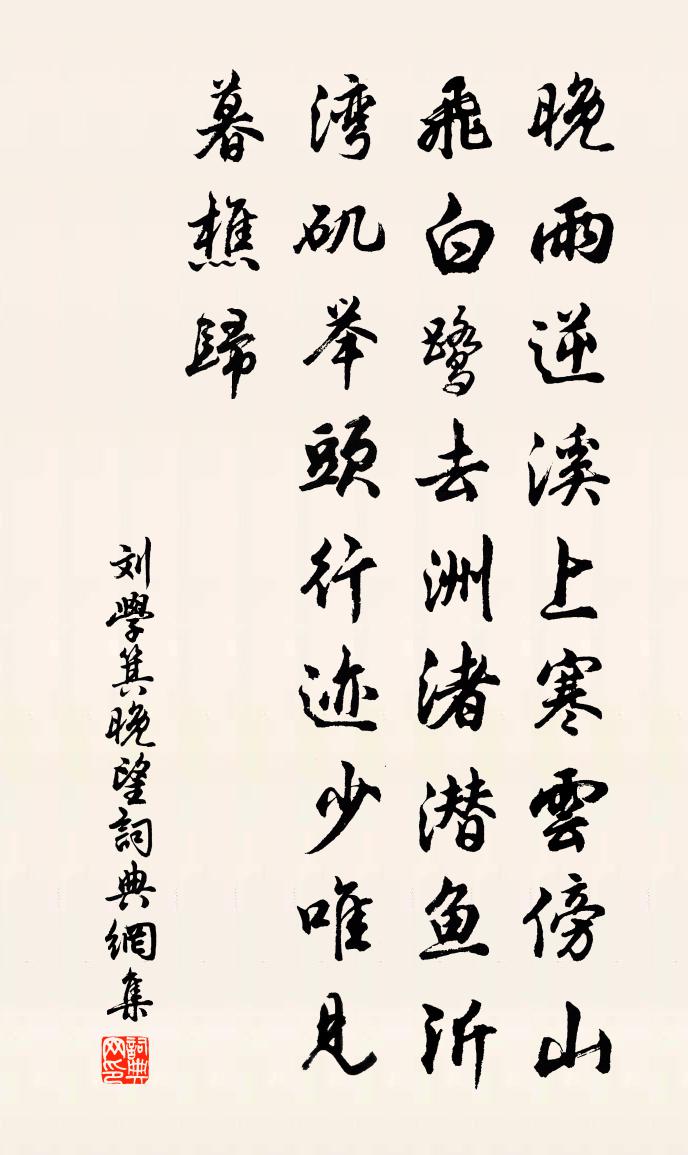 晚雨逆溪上寒雲傍山
飛白鹭去洲渚潜鱼沂
湾矶举頭行迹少唯見
暮樵歸
刘學箕晚望詞典網集
詞典网印